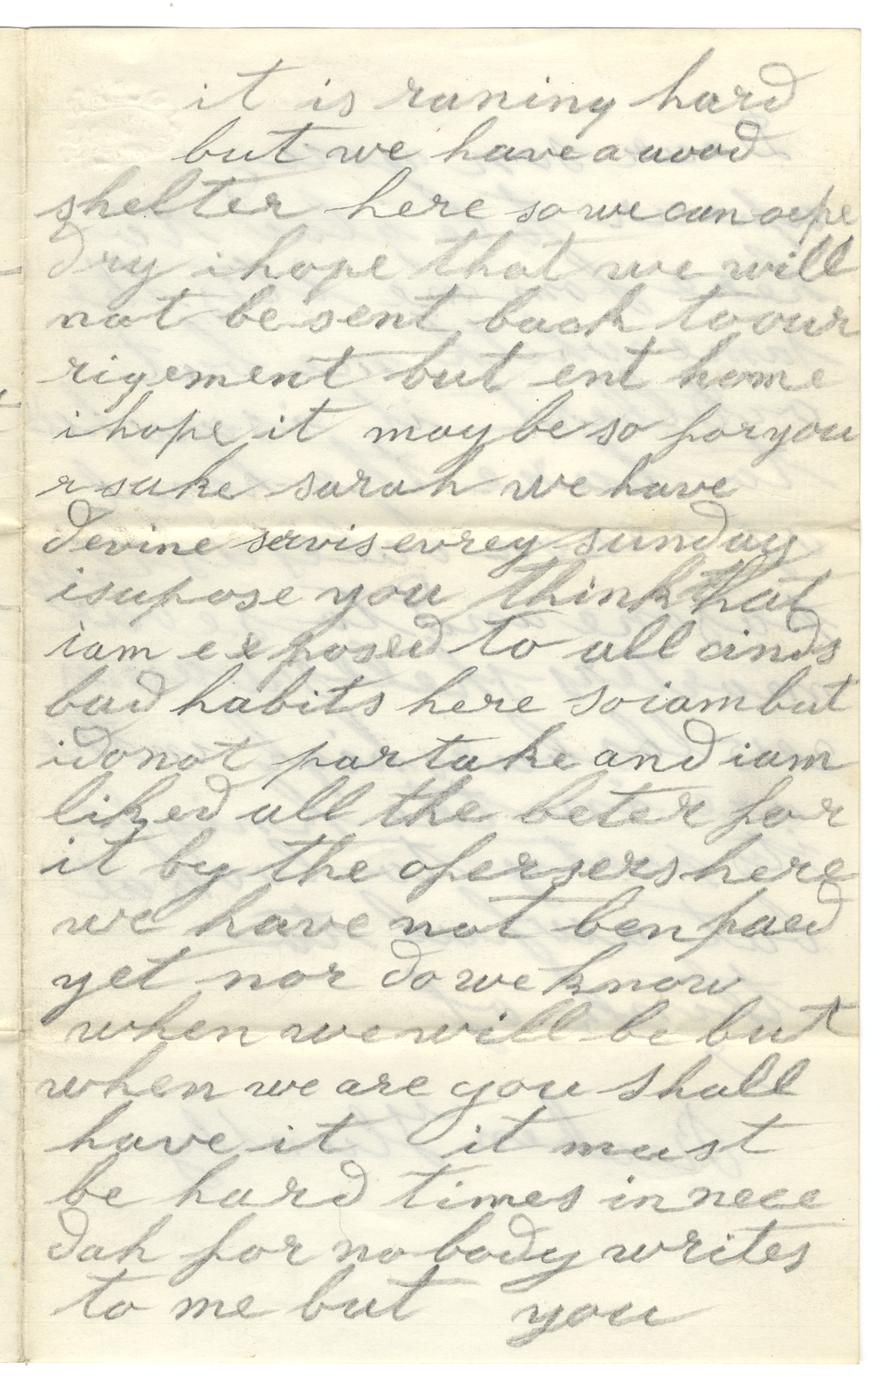 it is raning hard
but we have a good
shelter here so we can cepe
dry i hope that we will
not be sent back to our
rigement but ent home
i hope it may be so for you
r sake sarah we have
devine servis evrey sunday
i supose you think that
iam exposed to all cinds
bad habits here so iam but
i do not partake and iam
liked all the beter for
it by the ofersers here
we have not ben paed
yet nor do we know
when we will be but
when we are you shall
have it it must
be hard times in nece
dah for nobody writes
to me but you